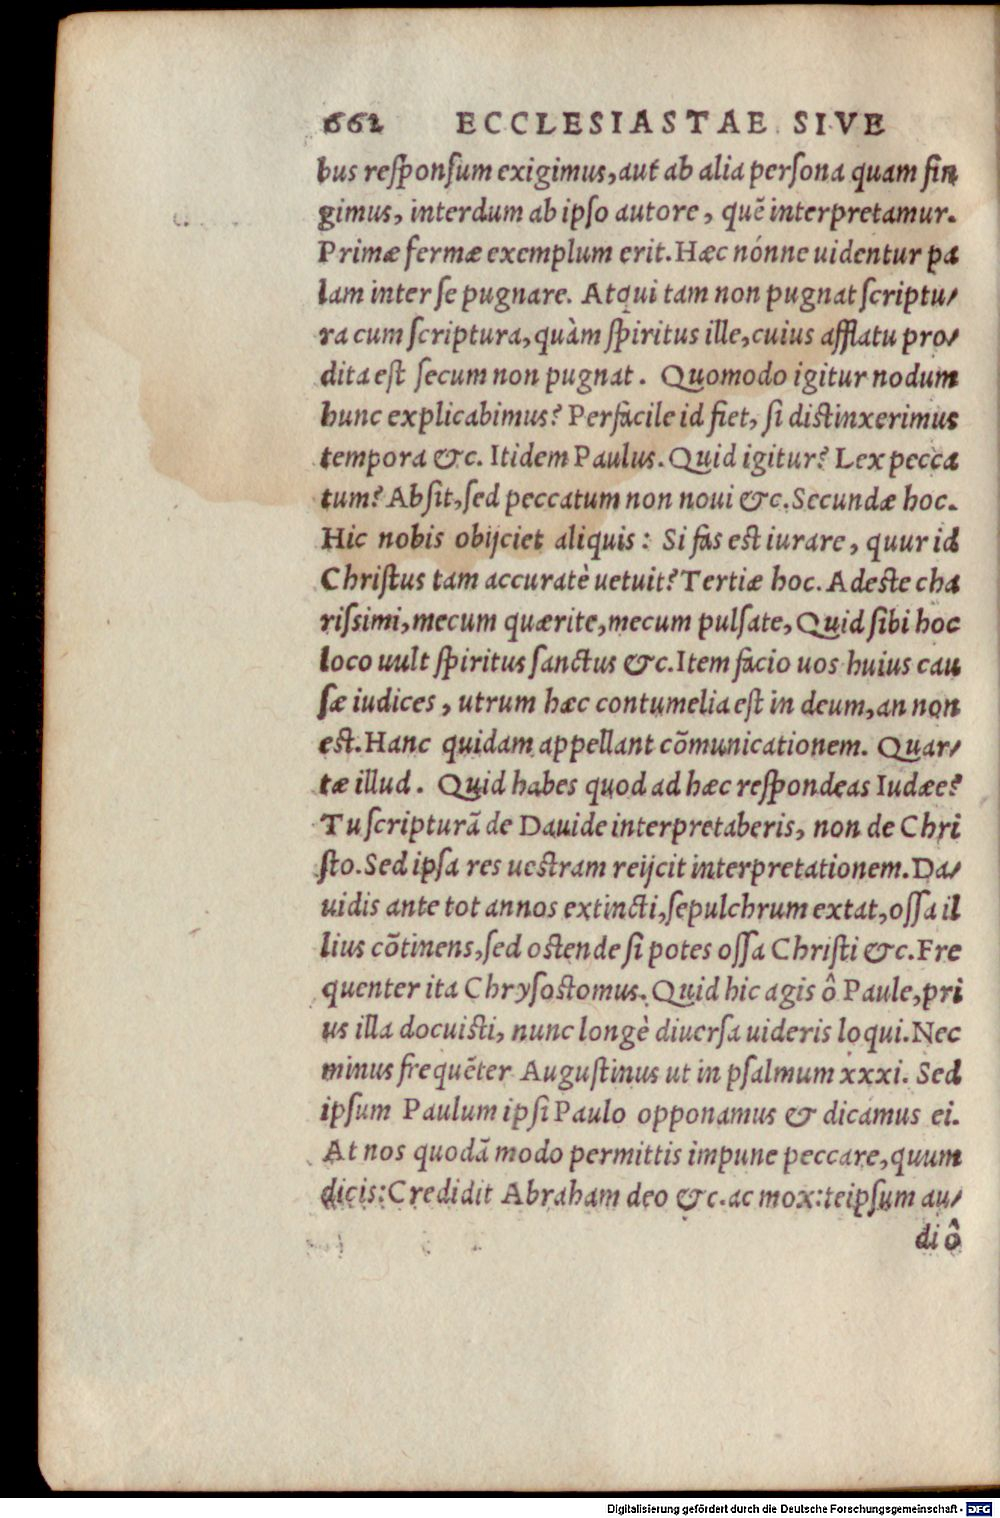 662 ECCLESIASTAE SIVE
bus responsum exigimus, aut ab alia persona quam fin
gimus, interdum ab ipso autore, quẽ interpretamur.
Primæ fermæ exemplum erit. Hæc nónne uidentur pa
lam inter se pugnare. Atqui tam non pugnat scriptu/
ra cum scriptura, quàm spiritus ille, cuius afflatu pro/
dita est secum non pugnat. Quomodo igitur nodum
hunc explicabimus? Perfacile id fiet, si distinxerimus
tempora &c. Itidem Paulus. Quid igitur? Lex pecca
tum? Absit, sed peccatum non noui &c. Secundæ hoc.
Hic nobis obijciet aliquis: Si fas est iurare, quur id
Christus tam accuratè uetuit? Tertiæ hoc. Adeste cha
rissimi, mecum quærite, mecum pulsate, Quid sibi hoc
loco uult spiritus sanctus &c. Item facio uos huius cau
sæ iudices, utrum hæc contumelia est in deum, an non
est. Hanc quidam appellant cõmunicationem. Quar/
tæ illud. Quid habes quod ad hæc respondeas Iudæe?
Tu scripturã de Dauide interpretaberis, non de Chri
sto. Sed ipsa res uestram reijcit interpretationem. Da/
uidis ante tot annos extincti, sepulchrum extat, ossa il
lius cõtinens, sed ostende si potes ossa Christi &c. Fre
quenter ita Chrysostomus. Quid hic agis ô Paule, pri
us illa docuisti, nunc longè diuersa uideris loqui. Nec
minus frequẽter Augustinus ut in psalmum xxxi. Sed
ipsum Paulum ipsi Paulo opponamus & dicamus ei.
At nos quodã modo permittis impune peccare, quum
dicis: Credidit Abraham deo &c. ac mox: teipsum au/
di ô
Digitalisierung gefördert durch die Deutsche Forschungsgemeinschaft - DFG